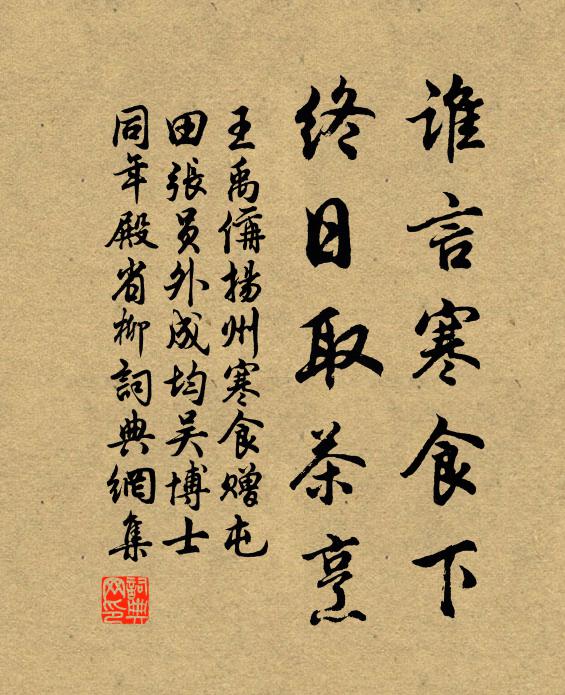 谁言寒食下
终日取茶烹
王禹偁揚州寒食赠屯
田張員外成均吴博士
同年殿省柳詞典網集
詞典网印